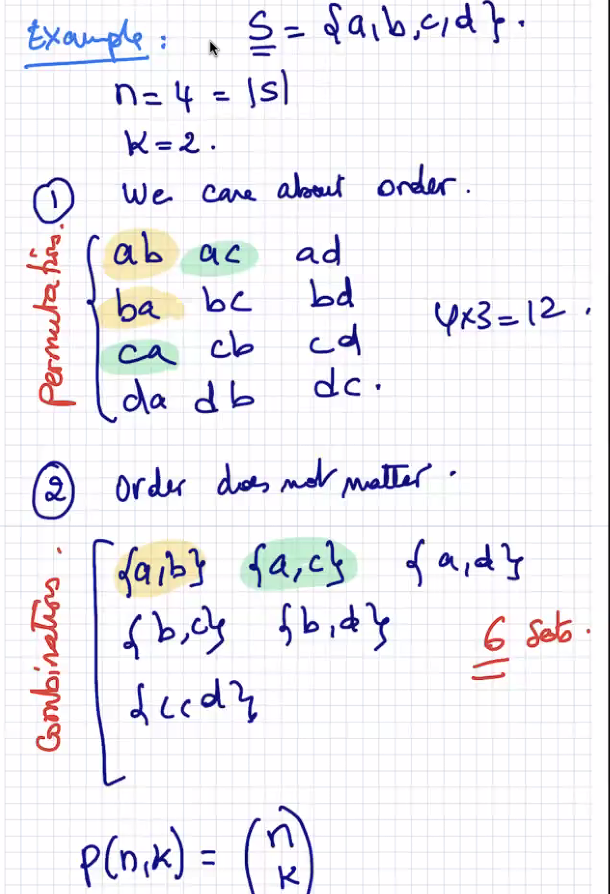 Example : S = {a,b,c,d}.
n = 4 = |S|
k = 2.
① We care about order.
Permutations.
ab ac ad
ba bc bd
4×3 = 12.
ca cb cd
da db dc.
② Order does not matter.
Combinations.
{a,b} {a,c} {a,d}
{b,c} {b,d}
6 sets.
{c,d}
P(n,k) = (n k)